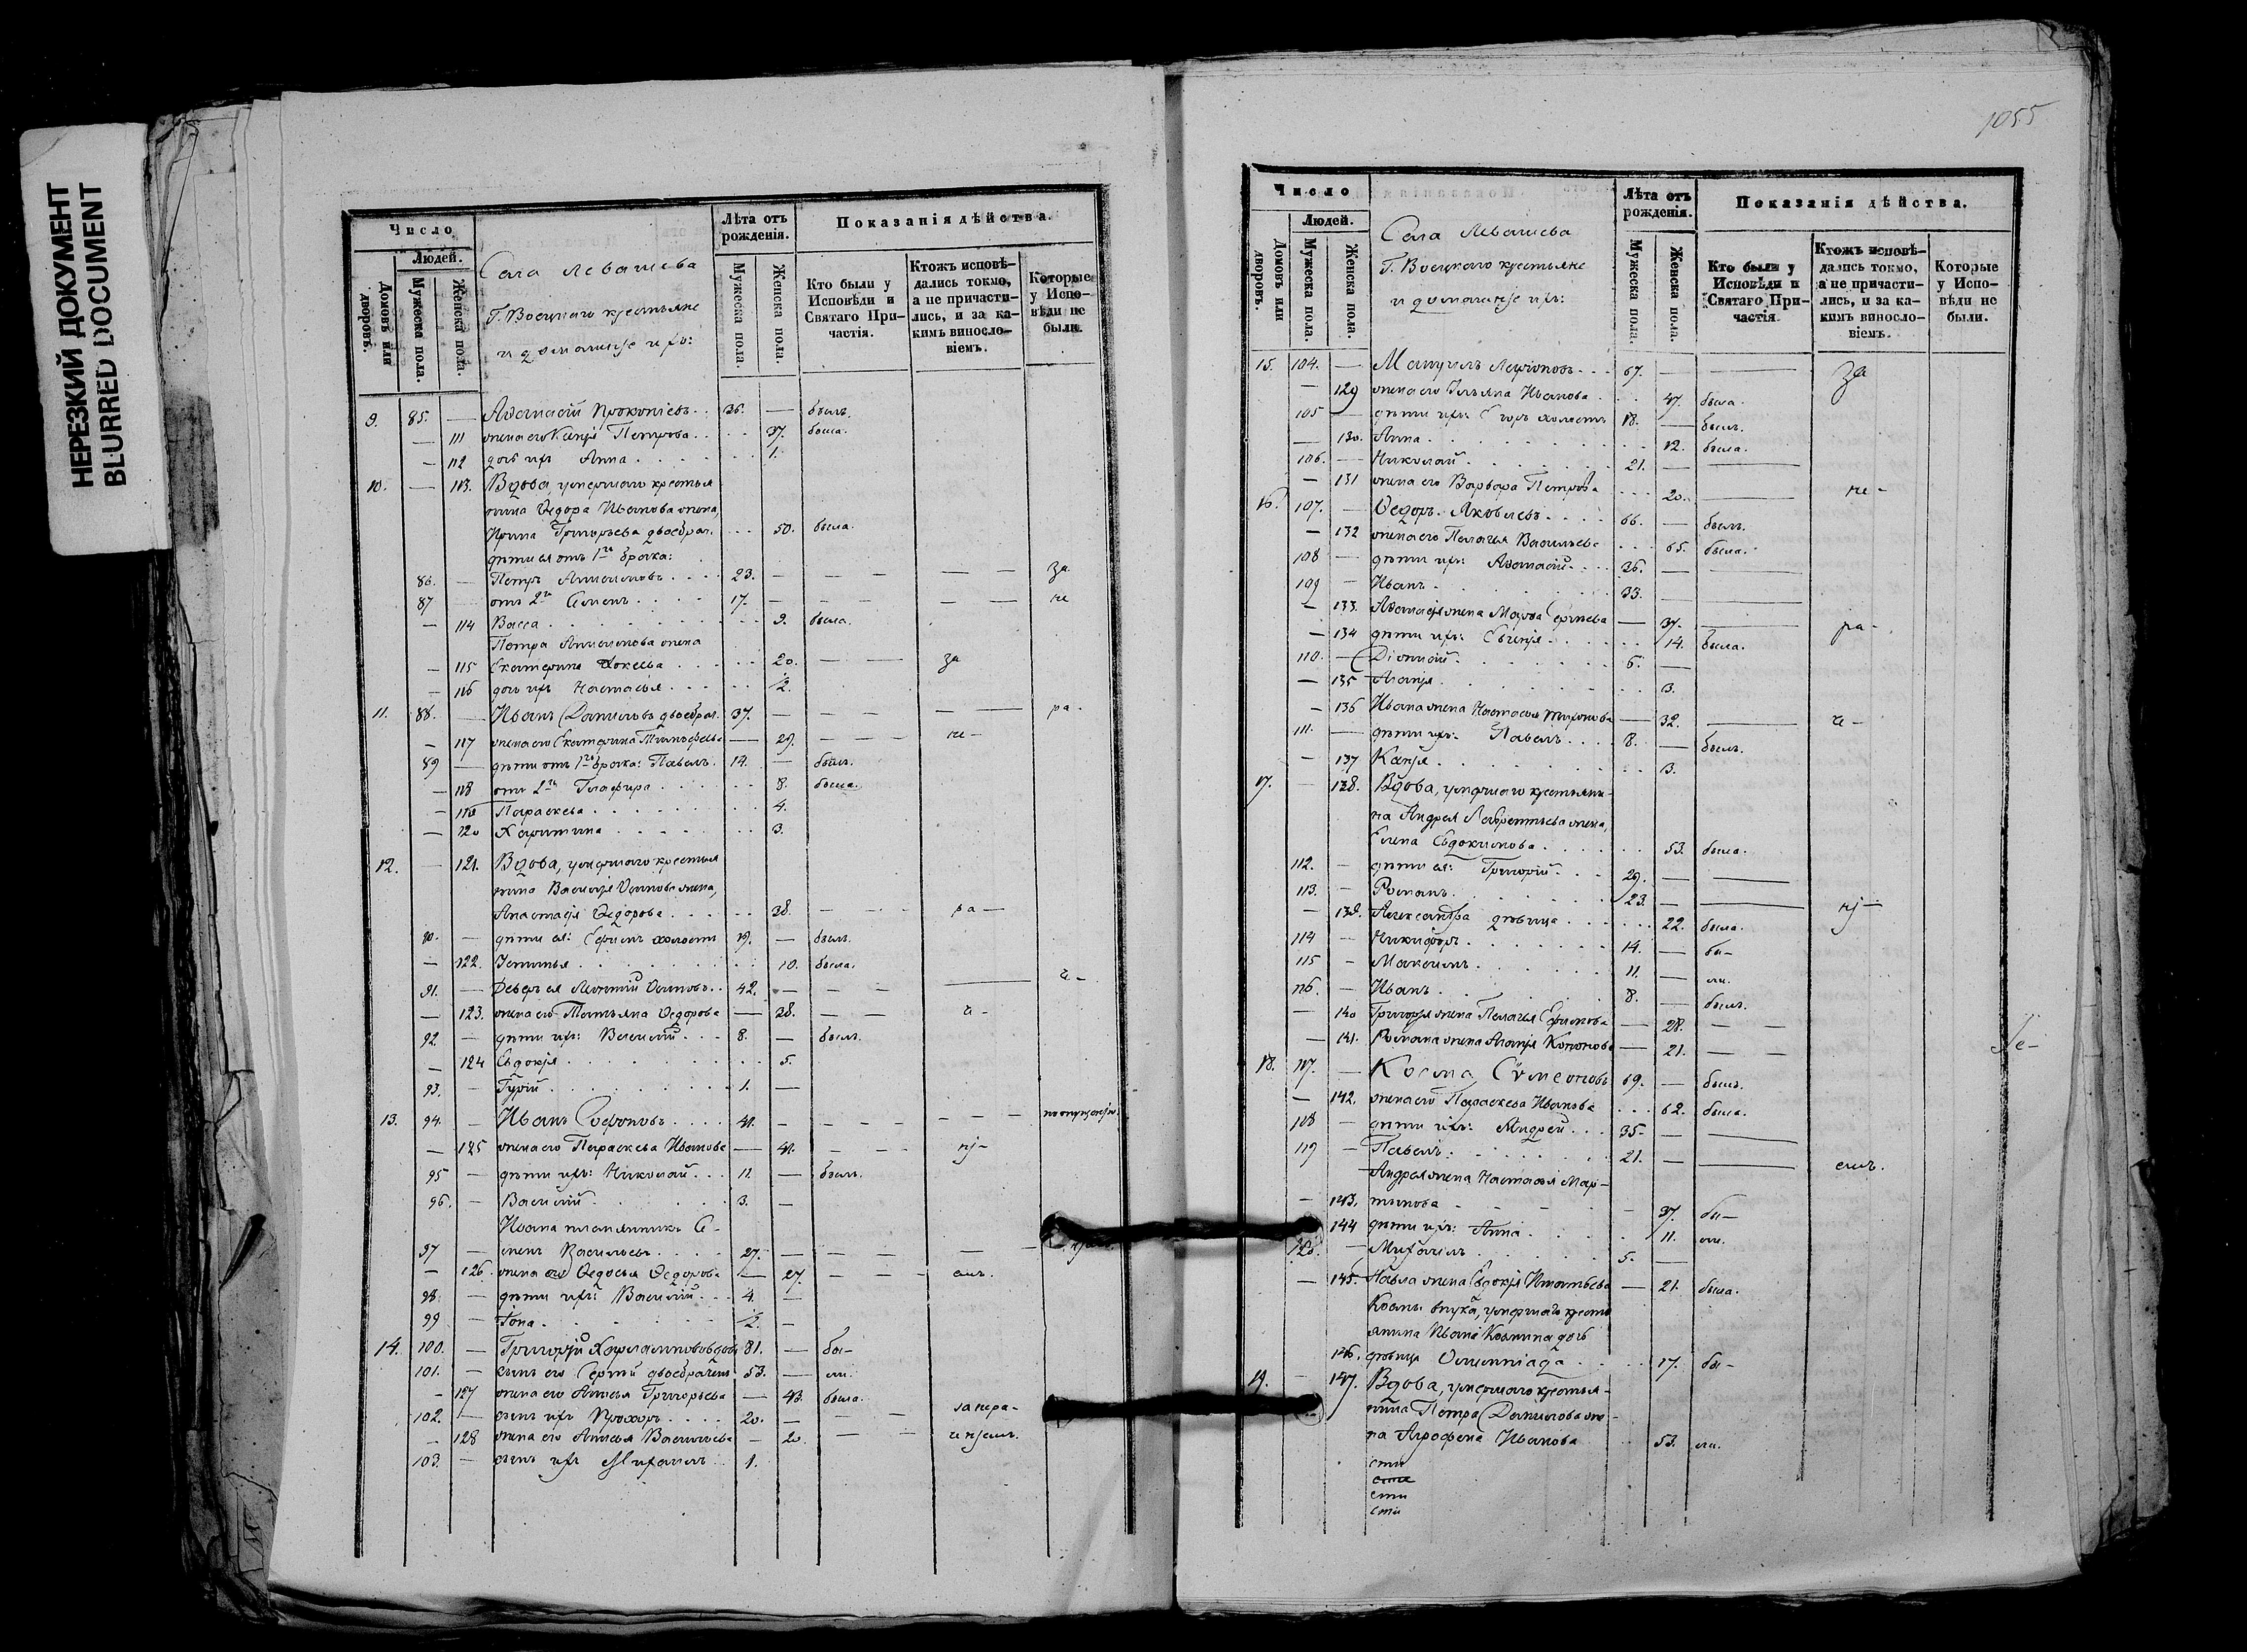 НЕРЕЗКИЙ ДОКУМЕНТ
BLURRED DOCUMENT
Число
Людей.
Домовъ или дворовъ.
Мужеска пола.
Женска пола.
Села Левашева
крестьяне
и домашніе ихъ:
Лѣта отъ рожденія.
Мужеска пола.
Женска пола.
Показанія дѣйства.
Кто были у Исповѣди и Святаго Причастія.
Ктожъ исповѣдались токмо, а не причастились, и за какимъ винословіемъ.
Которые у Исповѣди не были.
9. 85. — Афанасій Прокопіевъ 36. — былъ.
— 111 жена его Ксенія Петрова 37. была.
— 112 дочь ихъ Анна 1.
10. — 113. Вдова, умершаго крестья
нина Ѳедора Иванова жена,
Ирина Григорьева двоебрач. 50. была.
дѣти ея отъ 1го брака:
86. — Петръ 23. — — — — — за
87 отъ 2го Семенъ 17. — — — — — не
— 114 Васса 9. была.
Петра жена
— 115 Екатерина 20. — — за
— 116 дочь ихъ Настасья
11. 88. — Иванъ Даниловъ двоебрач. 37. — — — — — ра-
— 117 жена его Екатерина — 29. — — — че-
89 — дѣти отъ 1го брака: Павелъ. 14. — былъ.
— 118 отъ 2го Глафира 8. была.
— 119 Параскева 4.
— 120 Харитина 3.
12. — 121. Вдова, умершаго крестья
нина Василія Осипова жена,
Анастасія Ѳедорова 38. — — — ра —
90. — дѣти ея: Ефимъ холостъ 19. — былъ.
— 122. Устинья 10. была.
91. — Деверь ея Леонтій Осиповъ 42. — — —
— 123. жена его Татьяна Ѳедорова — 38. — —
92. — дѣти ихъ: Василій 8. — былъ.
— 124 Евдокія 5.
93. — Гурій 1. —
13. 94. — Иванъ Софроновъ 41. — — — — —
— 125 жена его Параскева Иванова — 41. — — — нј-
95 — дѣти ихъ: Николай 11. — былъ.
96. — Василій 3. —
Ивана племянникъ Се-
97 — менъ Васильевъ 27. — — — —
— 126. жена его Ѳедосья Ѳедорова — 27. — — — емъ.
98 — дѣти ихъ: Василій 4. —
99 — Іона —
14. 100. — Григорій Харлампіевъ вдовъ 81. — бы-
101. — сынъ его Сергій двоебраченъ 53. — ли.
— 127 жена его Анисья Григорьева — 43. была.
102. — сынъ ихъ Прохоръ 20. — — — за нера-
— 128 жена его Анисья Васильева — 20. — —
103. — сынъ ихъ Михаилъ 1.
1055
Число
Людей.
Домовъ или дворовъ.
Мужеска пола.
Женска пола.
Села Левашева
крестьяне
и домашніе ихъ:
Лѣта отъ рожденія.
Мужеска пола.
Женска пола.
Показанія дѣйства.
Кто были у Исповѣди и Святаго Причастія.
Ктожъ исповѣдались токмо, а не причастились, и за какимъ винословіемъ.
Которые у Исповѣди не были.
15. 104. — 67. — — за
— 129 жена его Ульяна Иванова 47. была.
105 — дѣти ихъ: Егоръ холостъ 18. — былъ.
— 130. Анна 12. была.
106. — Николай 21. — —
— 131 жена его Варвара Петрова 20. — не-
16. 107. — Ѳедоръ Яковлевъ 66. — былъ.
— 132 жена его Пелагея Васильева 65. была.
108 — дѣти ихъ: Афанасій 36. — —
109 — Иванъ 33. — —
— 133. Афанасія жена Марфа Сергѣева — 37. — ра-
— 134 дѣти ихъ: Евгенія 14. была.
110. — Діонисій 6. —
— 135 Агапія 3.
— 136 Ивана жена Настасья — 32. —
111. — дѣти ихъ: Павелъ 8. — былъ.
— 137 Капія 3.
17. — 138. Вдова, умершаго крестьяни-
на Андрея Лаврентьева жена,
Елена Евдокимова 53. была.
112. — дѣти ея: Григорій 29. — —
113. — Романъ 23. — — нј-
— 139. Александра дѣвица 22. была.
114 — Никифоръ 14. — бы-
115 — Максимъ 11. — ли.
116. — Иванъ 8. — былъ.
— 140 Григорія жена Пелагея Ефимова — 28. — —
— 141. Романа жена Агапія Кононова — 21. — —
18. 117. — Косма Сумеоновъ 69. — былъ.
— 142. жена его Параскева Иванова 62. была.
118 — дѣти ихъ: Андрей 35. — —
119 — Павелъ 21. — — емъ.
Андрея жена Настасья Мар-
— 143. тынова — 37. бы-
144 дѣти ихъ: Анна 11. ли.
120. — Михаилъ 5. —
— 145. Павла жена Евдокія Игнатьева — 21. была.
Космы внука, умершаго кресть
янина Ивана Космина дочь
146. дѣвица Олимпіада 17. бы-
19. — 147. Вдова, умершаго крестья-
нина Петра Данилова же-
на Агрофена Иванова 53. ли.
сти
сти
сти
сти